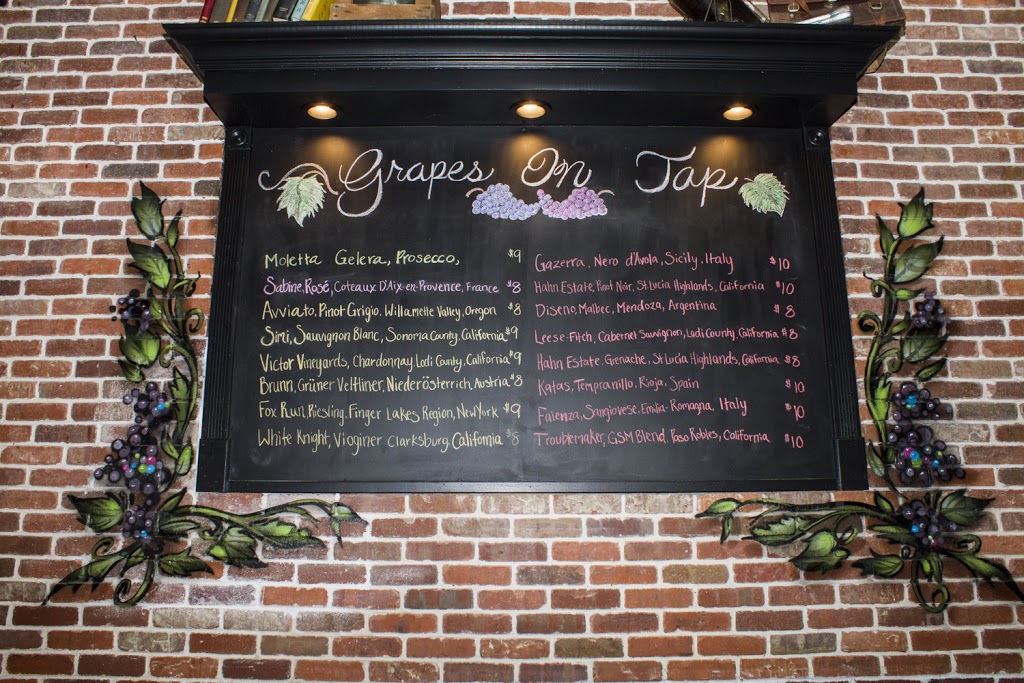 Grapes On Tap
Moletta Gelera, Prosecco, $9
Sabine, Rosé, Coteaux D'Aix-en-Provence, France $8
Avviato, Pinot Grigio, Willamette Valley, Oregon $8
Simi, Sauvignon Blanc, Sonoma County, California $9
Victor Vineyards, Chardonnay, Lodi County, California $9
Brunn, Grüner Veltliner, Niederösterrich, Austria $8
Fox Run, Riesling, Finger Lakes Region, New York $9
White Knight, Vioginer Clarksburg, California $8
Gazerra, Nero d'Avola, Sicily, Italy $10
Hahn Estate, Pinot Noir, St Lucia Highlands, California $10
Diseno, Malbec, Mendoza, Argentina $8
Leese-Fitch, Cabernet Sauvignon, Lodi County, California $8
Hahn Estate, Grenache, St Lucia Highlands, California $8
Katas, Tempranillo, Rioja, Spain $10
Faienza, Sangiovese, Emilia-Romagna, Italy $10
Troublemaker, GSM Blend, Paso Robles, California $10